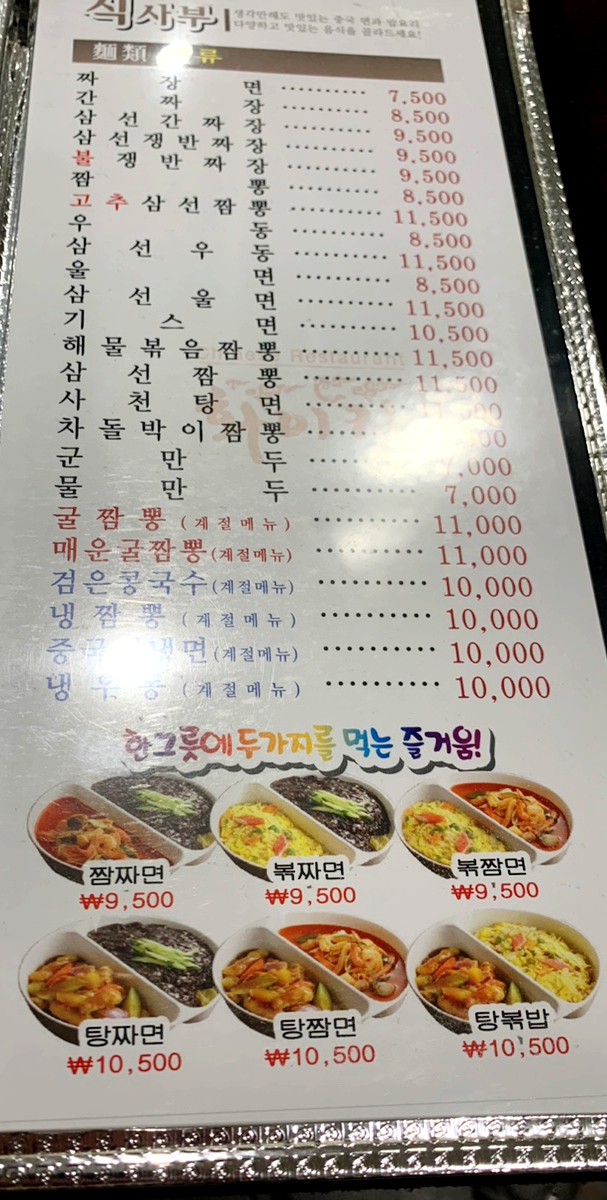 식사부 생각만해도 맛있는 중국 면과 밥요리
다양하고 맛있는 음식을 골라드세요!
麵類 류
짜장면 ·········· 7,500
간짜장 ·········· 8,500
삼선간짜장 ·········· 9,500
삼선쟁반짜장 ·········· 9,500
불쟁반짜장 ·········· 9,500
짬뽕 ·········· 8,500
고추삼선짬뽕 ·········· 11,500
우동 ·········· 8,500
삼선우동 ·········· 11,500
울면 ·········· 8,500
삼선울면 ·········· 11,500
기스면 ·········· 10,500
해물볶음짬뽕 ·········· 11,500
삼선짬뽕 ·········· 11,500
사천탕면 ··········
차돌박이짬뽕 ··········
군만두 ··········
물만두 ·········· 7,000
굴짬뽕 (계절메뉴) ·········· 11,000
매운굴짬뽕 (계절메뉴) ·········· 11,000
검은콩국수 (계절메뉴) ·········· 10,000
냉짬뽕 (계절메뉴) ·········· 10,000
중국냉면 (계절메뉴) ·········· 10,000
냉우동 (계절메뉴) ·········· 10,000
Restaurant
한그릇에 두가지를 먹는 즐거움!
짬짜면 볶짜면 볶짬면
₩9,500 ₩9,500 ₩9,500
탕짜면 탕짬면 탕볶밥
₩10,500 ₩10,500 ₩10,500